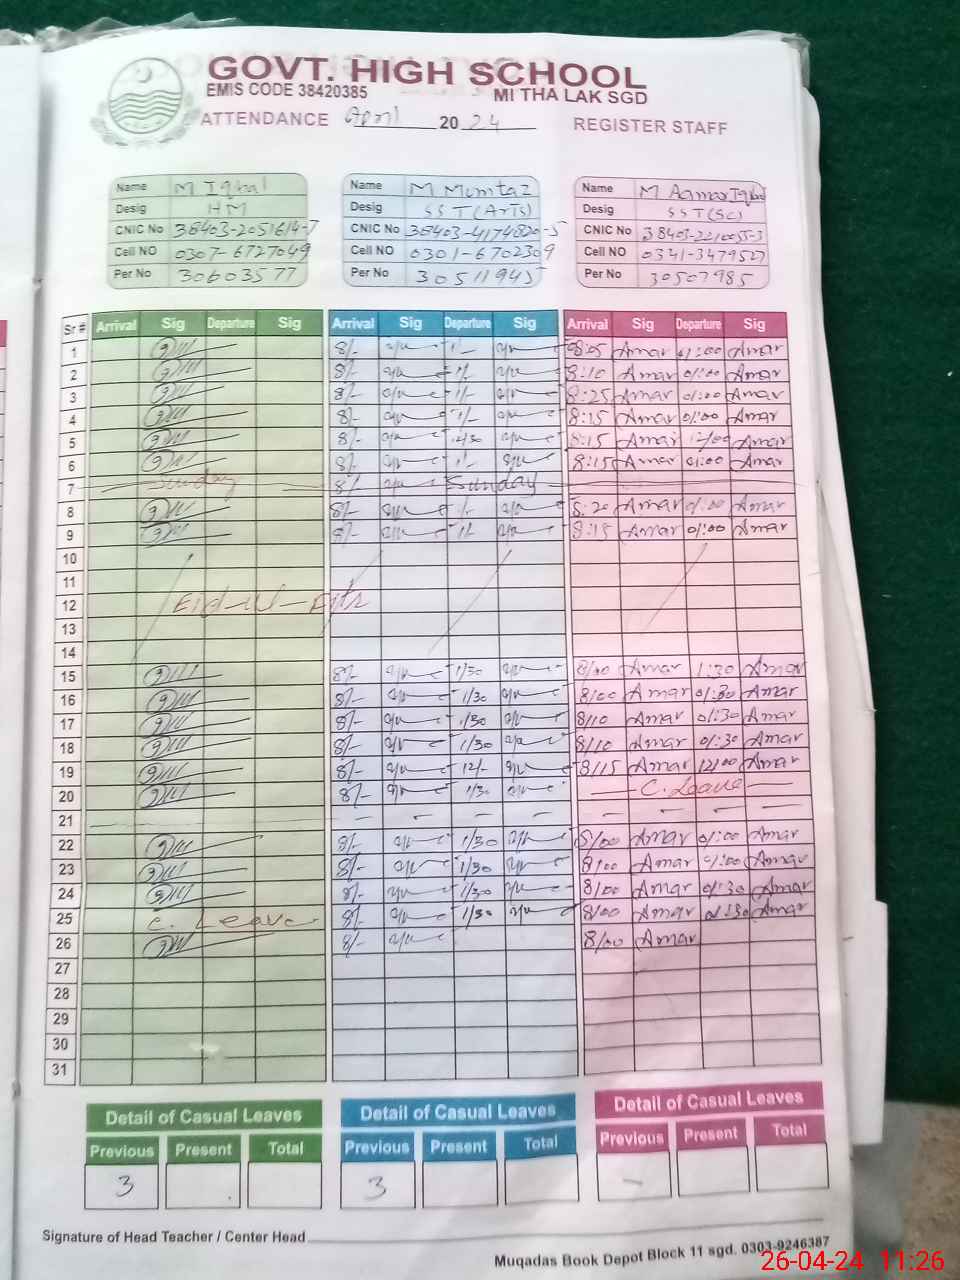 GOVT. HIGH SCHOOL
EMIS CODE 38420385 MITHA LAK SGD
ATTENDANCE April 2024 REGISTER STAFF
Name M Iqbal Name M Mumtaz Name M Aamar Iqbal
Desig HM Desig SST(Arts) Desig SST(Sc)
CNIC No 38403-2051614-7 CNIC No 38403-4174820-5 CNIC No 38403-2210055-3
Cell NO 0307-6727049 Cell NO 0301-6702309 Cell NO 0341-3479527
Per No 30603577 Per No 30511945 Per No 30507985
Sr # Arrival Sig Departure Sig Arrival Sig Departure Sig Arrival Sig Departure Sig
1 8/- 1/- 8:05 Amar 01:00 Amar
2 8/- 1/- 8:10 Amar 01:00 Amar
3 8/- 1/- 8:25 Amar 01:00 Amar
4 8/- 1/- 8:15 Amar 01:00 Amar
5 8/- 12/30 8:15 Amar 12/00 Amar
6 8/- 1/- 8:15 Amar 01:00 Amar
7 Sunday 8/- Sunday
8 8/- 1/- 8:20 Amar 01:00 Amar
9 8/- 1/- 8:15 Amar 01:00 Amar
10
11
12 Eid-ul-Fitr
13
14
15 8/- 1/30 8/00 Amar 1:30 Amar
16 8/- 1/30 8/00 Amar 01/30 Amar
17 8/- 1/30 8/10 Amar 01:30 Amar
18 8/- 1/30 8/10 Amar 01:30 Amar
19 8/- 12/- 8/15 Amar 12/00 Amar
20 8/- 1/30 C. Leave
21
22 8/- 1/30 8/00 Amar 01:00 Amar
23 8/- 1/30 8/00 Amar 01:00 Amar
24 8/- 1/30 8/00 Amar 01:30 Amar
25 C. Leave 8/- 1/30 8/00 Amar 01:30 Amar
26 8/- 8/00 Amar
27
28
29
30
31
Detail of Casual Leaves Detail of Casual Leaves Detail of Casual Leaves
Previous Present Total Previous Present Total Previous Present Total
3 3 -
Signature of Head Teacher / Center Head
Muqadas Book Depot Block 11 sgd. 0303-9246387
26-04-24 11:26